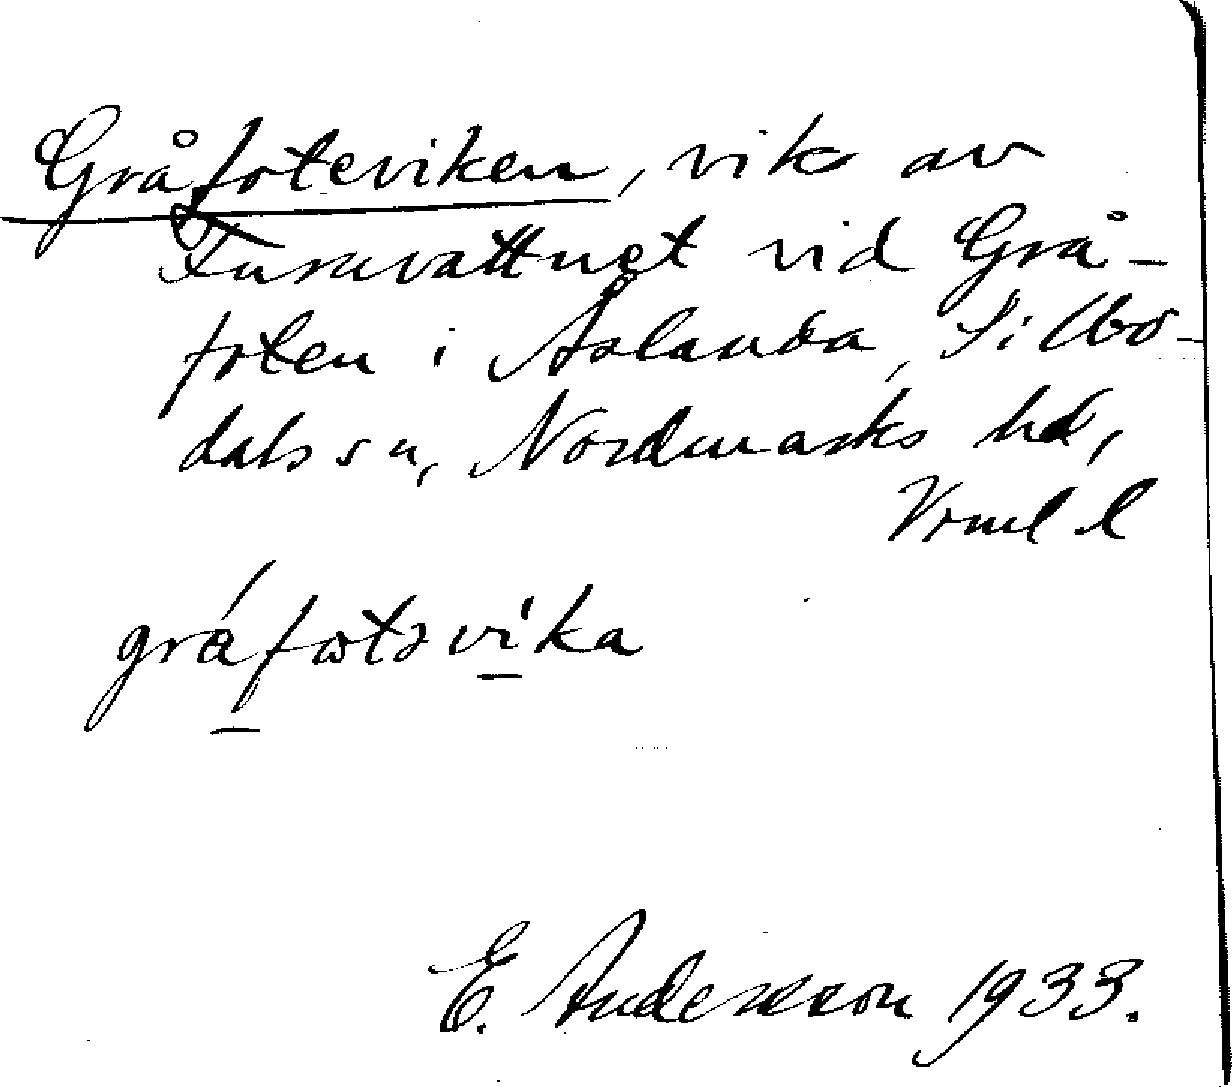 Gråfoteviken, vik av
Furuvattnet vid Grå-
foten i Åslanda, Silbo-
dals sn, Nordmarks hd,
Vrml l
gråfotəvika
E. Andersson 1933.